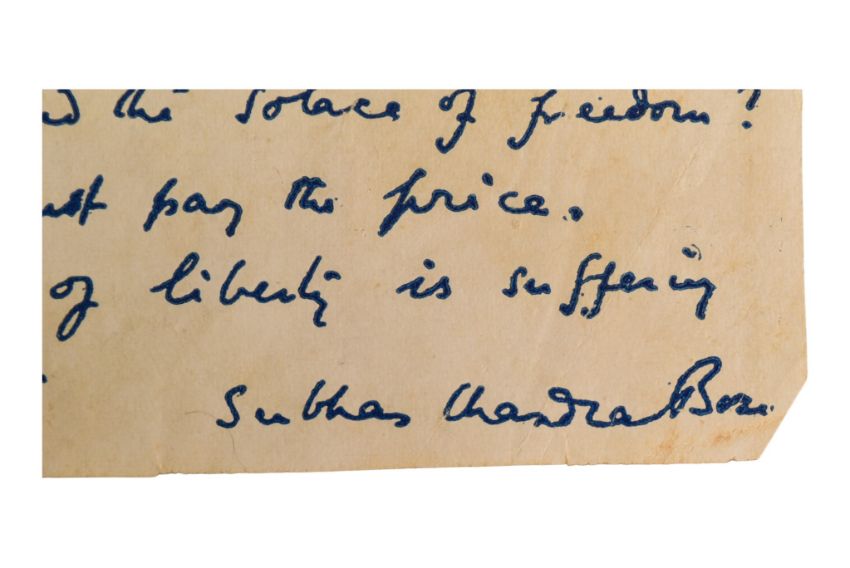 the solace of freedom?
pay the price.
of liberty is suffering
Subhas Chandra Bose.